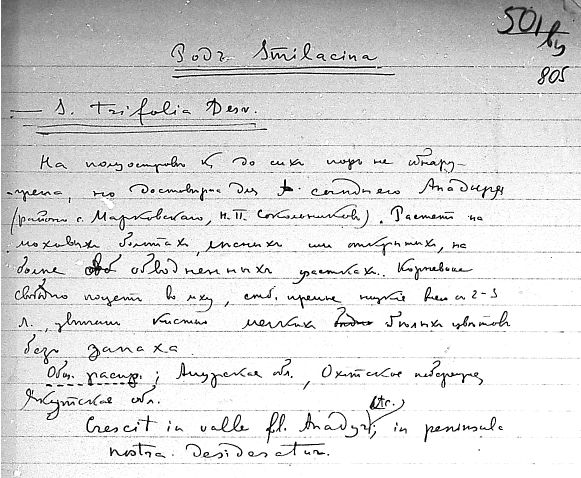 501 
805
Родъ Smilacina
— S. trifolia Desv.
На полуостровѣ К. до сихъ поръ не обнару-
жена, но достовѣрна для сосѣдняго Анадыря
(районъ с. Марковскаго, Н. П. Сокольниковъ). Растетъ на
моховыхъ болотахъ, лѣсныхъ или открытыхъ, на
болѣе обводненныхъ участкахъ. Корневище
свободно ползетъ во мху, стебли прямые низкіе 2-3
л., цвѣтки кистью мелкихъ бѣлыхъ цвѣтовъ
безъ запаха
Общ. распр.; Амурская обл., Охотское побережье,
Якутская обл.
Crescit in valle fl. Anadyr; in peninsula
nostra desideratur.